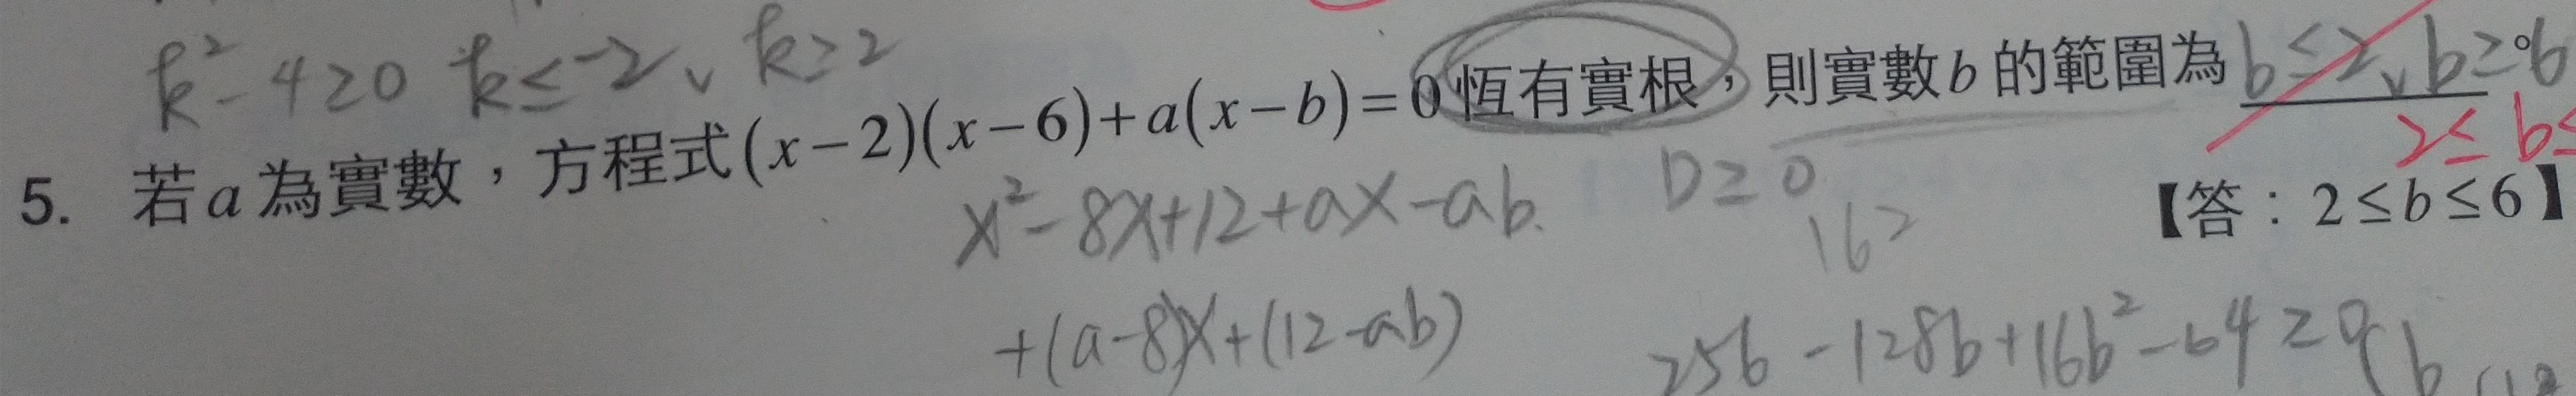 k²-4≥0 k≤-2、k≥2
5. 若a為實數，方程式(x-2)(x-6)+a(x-b)=0恆有實根，則實數b的範圍為 b≤2、b≥6。
2≤b≤
x²-8x+12+ax-ab. D≥0 【答：2≤b≤6】
16²
+(a-8)x+(12-ab) 256-128b+16b²-64≥0